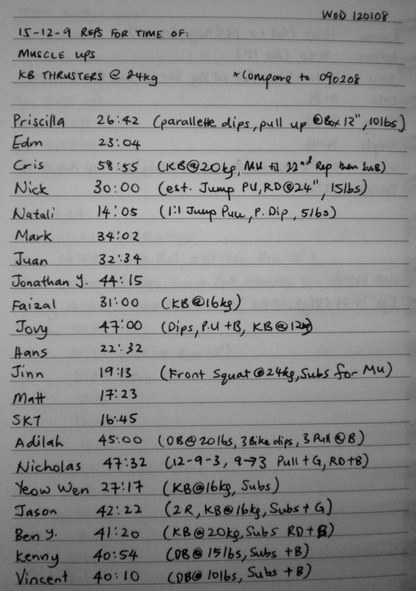 WOD 120108
15-12-9 REPS FOR TIME OF:
MUSCLE UPS
KB THRUSTERS @ 24kg *Compare to 090208
Priscilla 26:42 (parallette dips, pull up @Box 12", 10lbs)
Edm 23:04
Cris 58:55 (KB@20kg, MU til 22nd Rep then SUB)
Nick 30:00 (est. Jump PU, RD@24", 15lbs)
Natali 14:05 (1:1 Jump Pull, P. Dip, 5lbs)
Mark 34:02
Juan 32:34
Jonathan Y. 44:15
Faizal 31:00 (KB@16kg)
Jovy 47:00 (Dips, P.U +B, KB@12kg)
Hans 22:32
Jinn 19:13 (Front Squat @24kg, Subs for MU)
Matt 17:23
SKT 16:45
Adilah 45:00 (DB@20lbs, 3Bike dips, 3 Pull @B)
Nicholas 47:32 (12-9-3, 9→3 Pull+G, RD+B)
Yeow Wen 27:17 (KB@16kg, Subs)
Jason 42:22 (2R, KB@16kg, Subs + G)
Ben Y. 41:20 (KB@20kg, Subs RD+B)
Kenny 40:54 (DB@15lbs, Subs +B)
Vincent 40:10 (DB@10lbs, Subs +B)